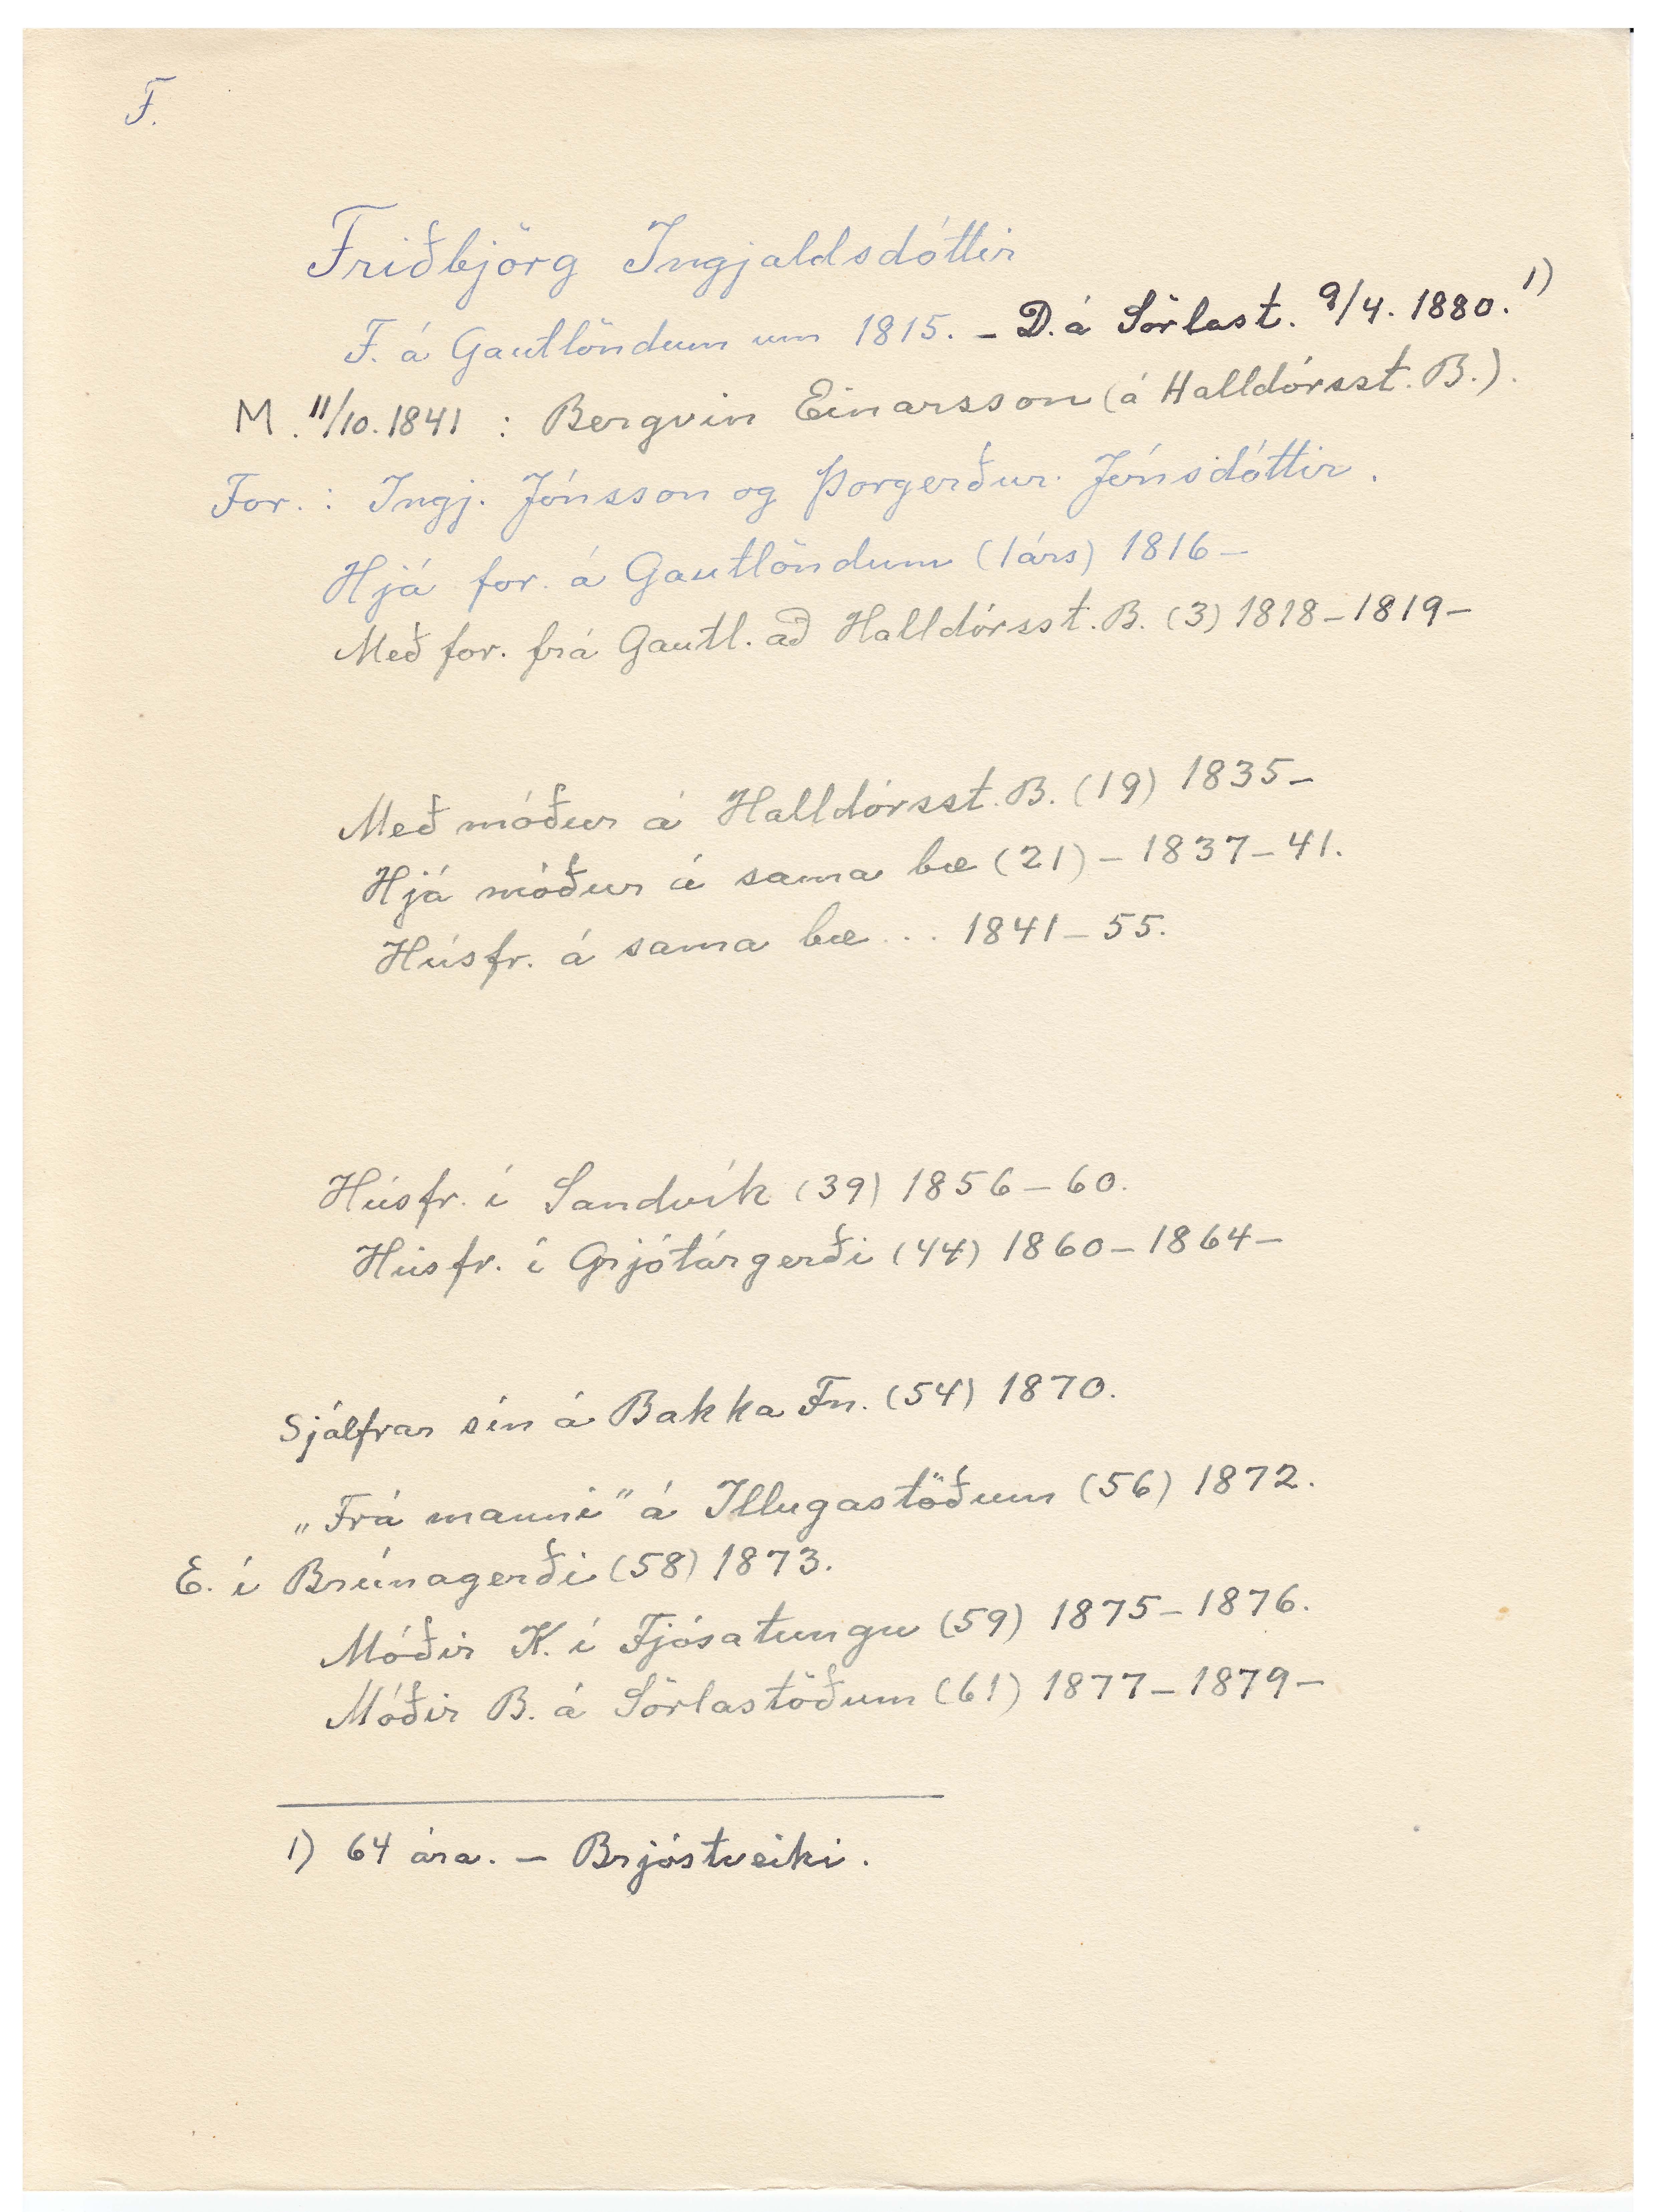 F.
Friðbjörg Ingjaldsdóttir
F. á Gautlöndum um 1815. – D. á Sörlast. 9/4. 1880. 1)
M. 11/10. 1841 : Bergvin Einarsson (á Halldórsst. B.).
For. : Ingj. Jónsson og Þorgerður Jónsdóttir.
Hjá for. á Gautlöndum (1 árs) 1816 –
Með for. frá Gautl. að Halldórsst. B. (3) 1818 – 1819 –
Með móður á Halldórsst. B. (19) 1835 –
Hjá móður á sama bæ (21) – 1837 – 41.
Húsfr. á sama bæ ... 1841 – 55.
Húsfr. í Sandvík (39) 1856 – 60.
Húsfr. í Grjótárgerði (44) 1860 – 1864 –
Sjálfrar sín á Bakka Fn. (54) 1870.
„Frá manni" á Illugastöðum (56) 1872.
E. í Brúnagerði (58) 1873.
Móðir K. í Fjósatungu (59) 1875 – 1876.
Móðir B. á Sörlastöðum (61) 1877 – 1879 –
1) 64 ára. – Brjóstveiki.